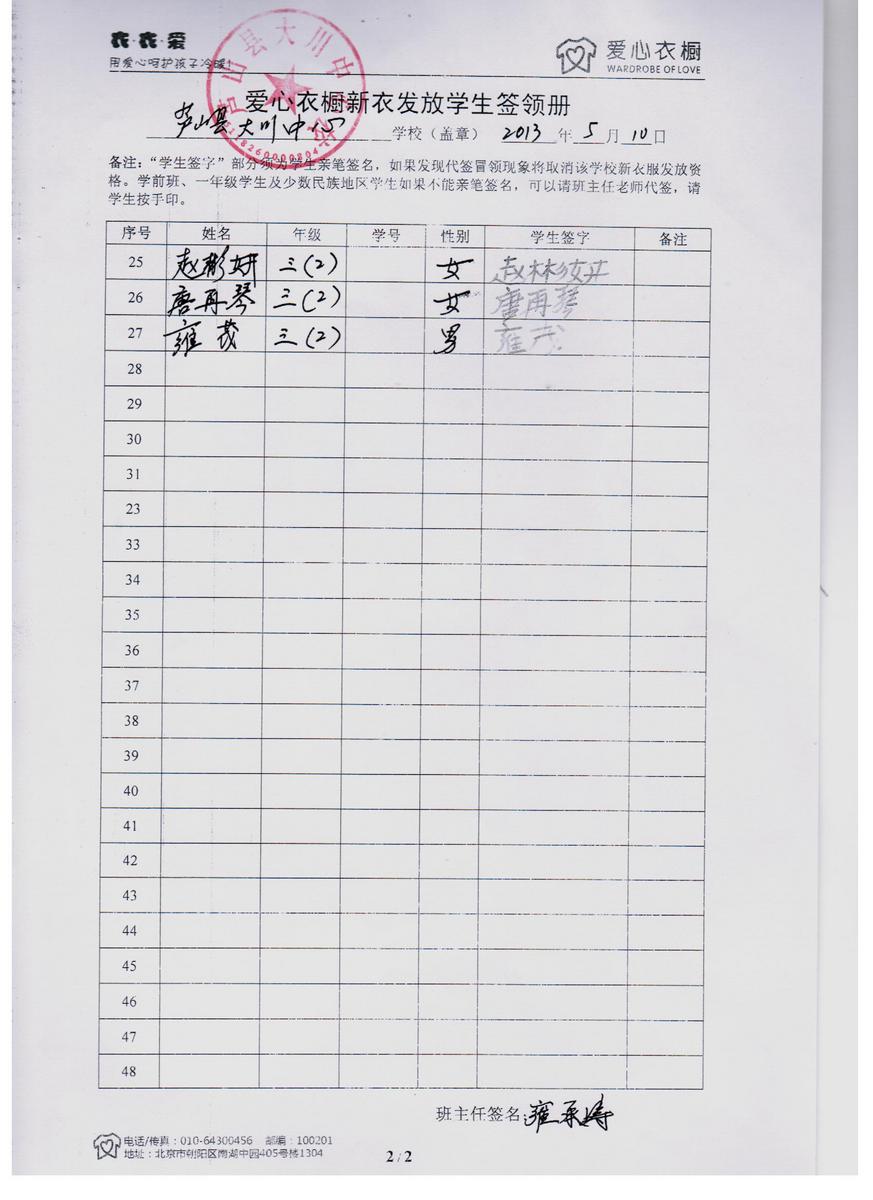 衣·衣·爱
用爱心呵护孩子冷暖!
爱心衣橱
WARDROBE OF LOVE
芦山县大川中
5118260000804
爱心衣橱新衣发放学生签领册
芦山县大川中心 学校（盖章） 2013 年 5 月 10 日
备注：“学生签字”部分须为学生亲笔签名，如果发现代签冒领现象将取消该学校新衣服发放资
格。学前班、一年级学生及少数民族地区学生如果不能亲笔签名，可以请班主任老师代签，请
学生按手印。
序号 姓名 年级 学号 性别 学生签字 备注
25 赵彬妍 三(2) 女 赵彬妍
26 唐再琴 三(2) 女 唐再琴
27 雍茂 三(2) 男 雍茂
28
29
30
31
23
33
34
35
36
37
38
39
40
41
42
43
44
45
46
47
48
班主任签名:雍承涛
电话/传真：010-64300456 邮编：100201
地址：北京市朝阳区南湖中园405号楼1304
2 / 2